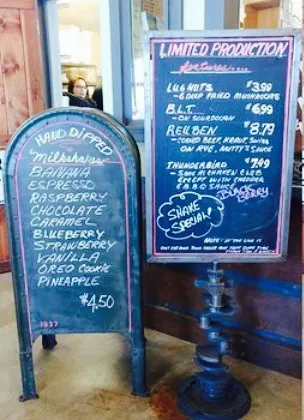 HAND DIPPED
Milkshakes
BANANA
ESPRESSO
RASPBERRY
CHOCOLATE
CARAMEL
BLUEBERRY
STRAWBERRY
VANILLA
OREO COOKIE
PINEAPPLE
$4.50
1937
LIMITED PRODUCTION
features....
LUG NUTS $3.99
-6 DEEP FRIED MUSHROOMS
B.L.T. $6.99
-ON SOURDOUGH
REUBEN $8.79
-CORNED BEEF, KRAUT, SWISS
ON RYE, NUTTY'S SAUCE
THUNDERBIRD $7.49
- SAME AS CHICKEN CLUB
EXCEPT WITH CHEDDAR
& B.B.Q SAUCE
BLACKBERRY
SHAKE
SPECIAL!
NOTE: IF THE LINE IS